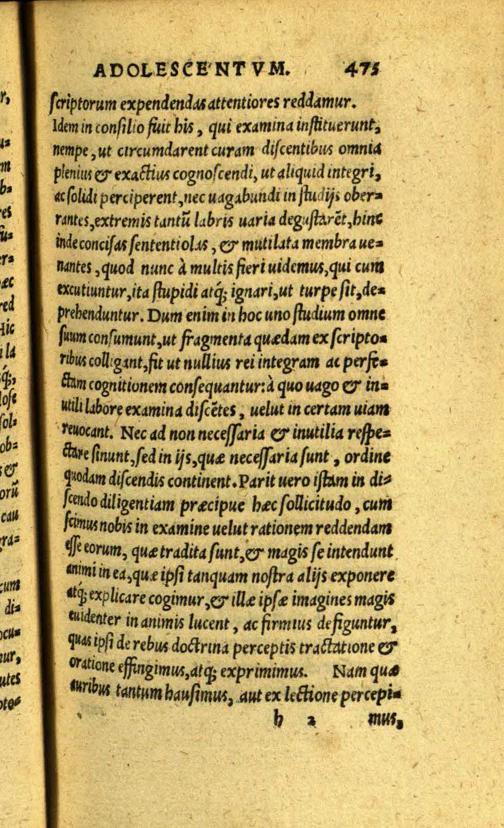 ADOLESCENTVM. 475
scriptorum expendendas attentiores reddamur.
Idem in consilio fuit his, qui examina instituerunt,
nempe, ut circumdarent curam discentibus omnia
plenius & exactius cognoscendi, ut aliquid integri,
ac solidi perciperent, nec uagabundi in studijs ober=
rantes, extremis tantũ labris uaria degustarẽt, hinc
inde concisas sententiolas, & mutilata membra ue=
nantes, quod nunc à multis fieri uidemus, qui cum
excutiuntur, ita stupidi atq; ignari, ut turpe sit, de=
prehenduntur. Dum enim in hoc uno studium omne
suum consumunt, ut fragmenta quædam ex scripto=
ribus colligant, fit ut nullius rei integram ac perfe=
ctam cognitionem consequantur: à quo uago & in=
utili labore examina discẽtes, uelut in certam uiam
reuocant. Nec ad non necessaria & inutilia respe=
ctare sinunt, sed in ijs, quæ necessaria sunt, ordine
quodam discendis continent. Parit uero istam in di=
scendo diligentiam præcipue hæc sollicitudo, cum
scimus nobis in examine uelut rationem reddendam
esse eorum, quæ tradita sunt, & magis se intendunt
animi in ea, quæ ipsi tanquam nostra alijs exponere
atq; explicare cogimur, & illæ ipsæ imagines magis
euidenter in animis lucent, ac firmius defiguntur,
quas ipsi de rebus doctrina perceptis tractatione &
oratione effingimus, atq; exprimimus. Nam quæ
auribus tantum hausimus, aut ex lectione percepi=
h 2 mus,